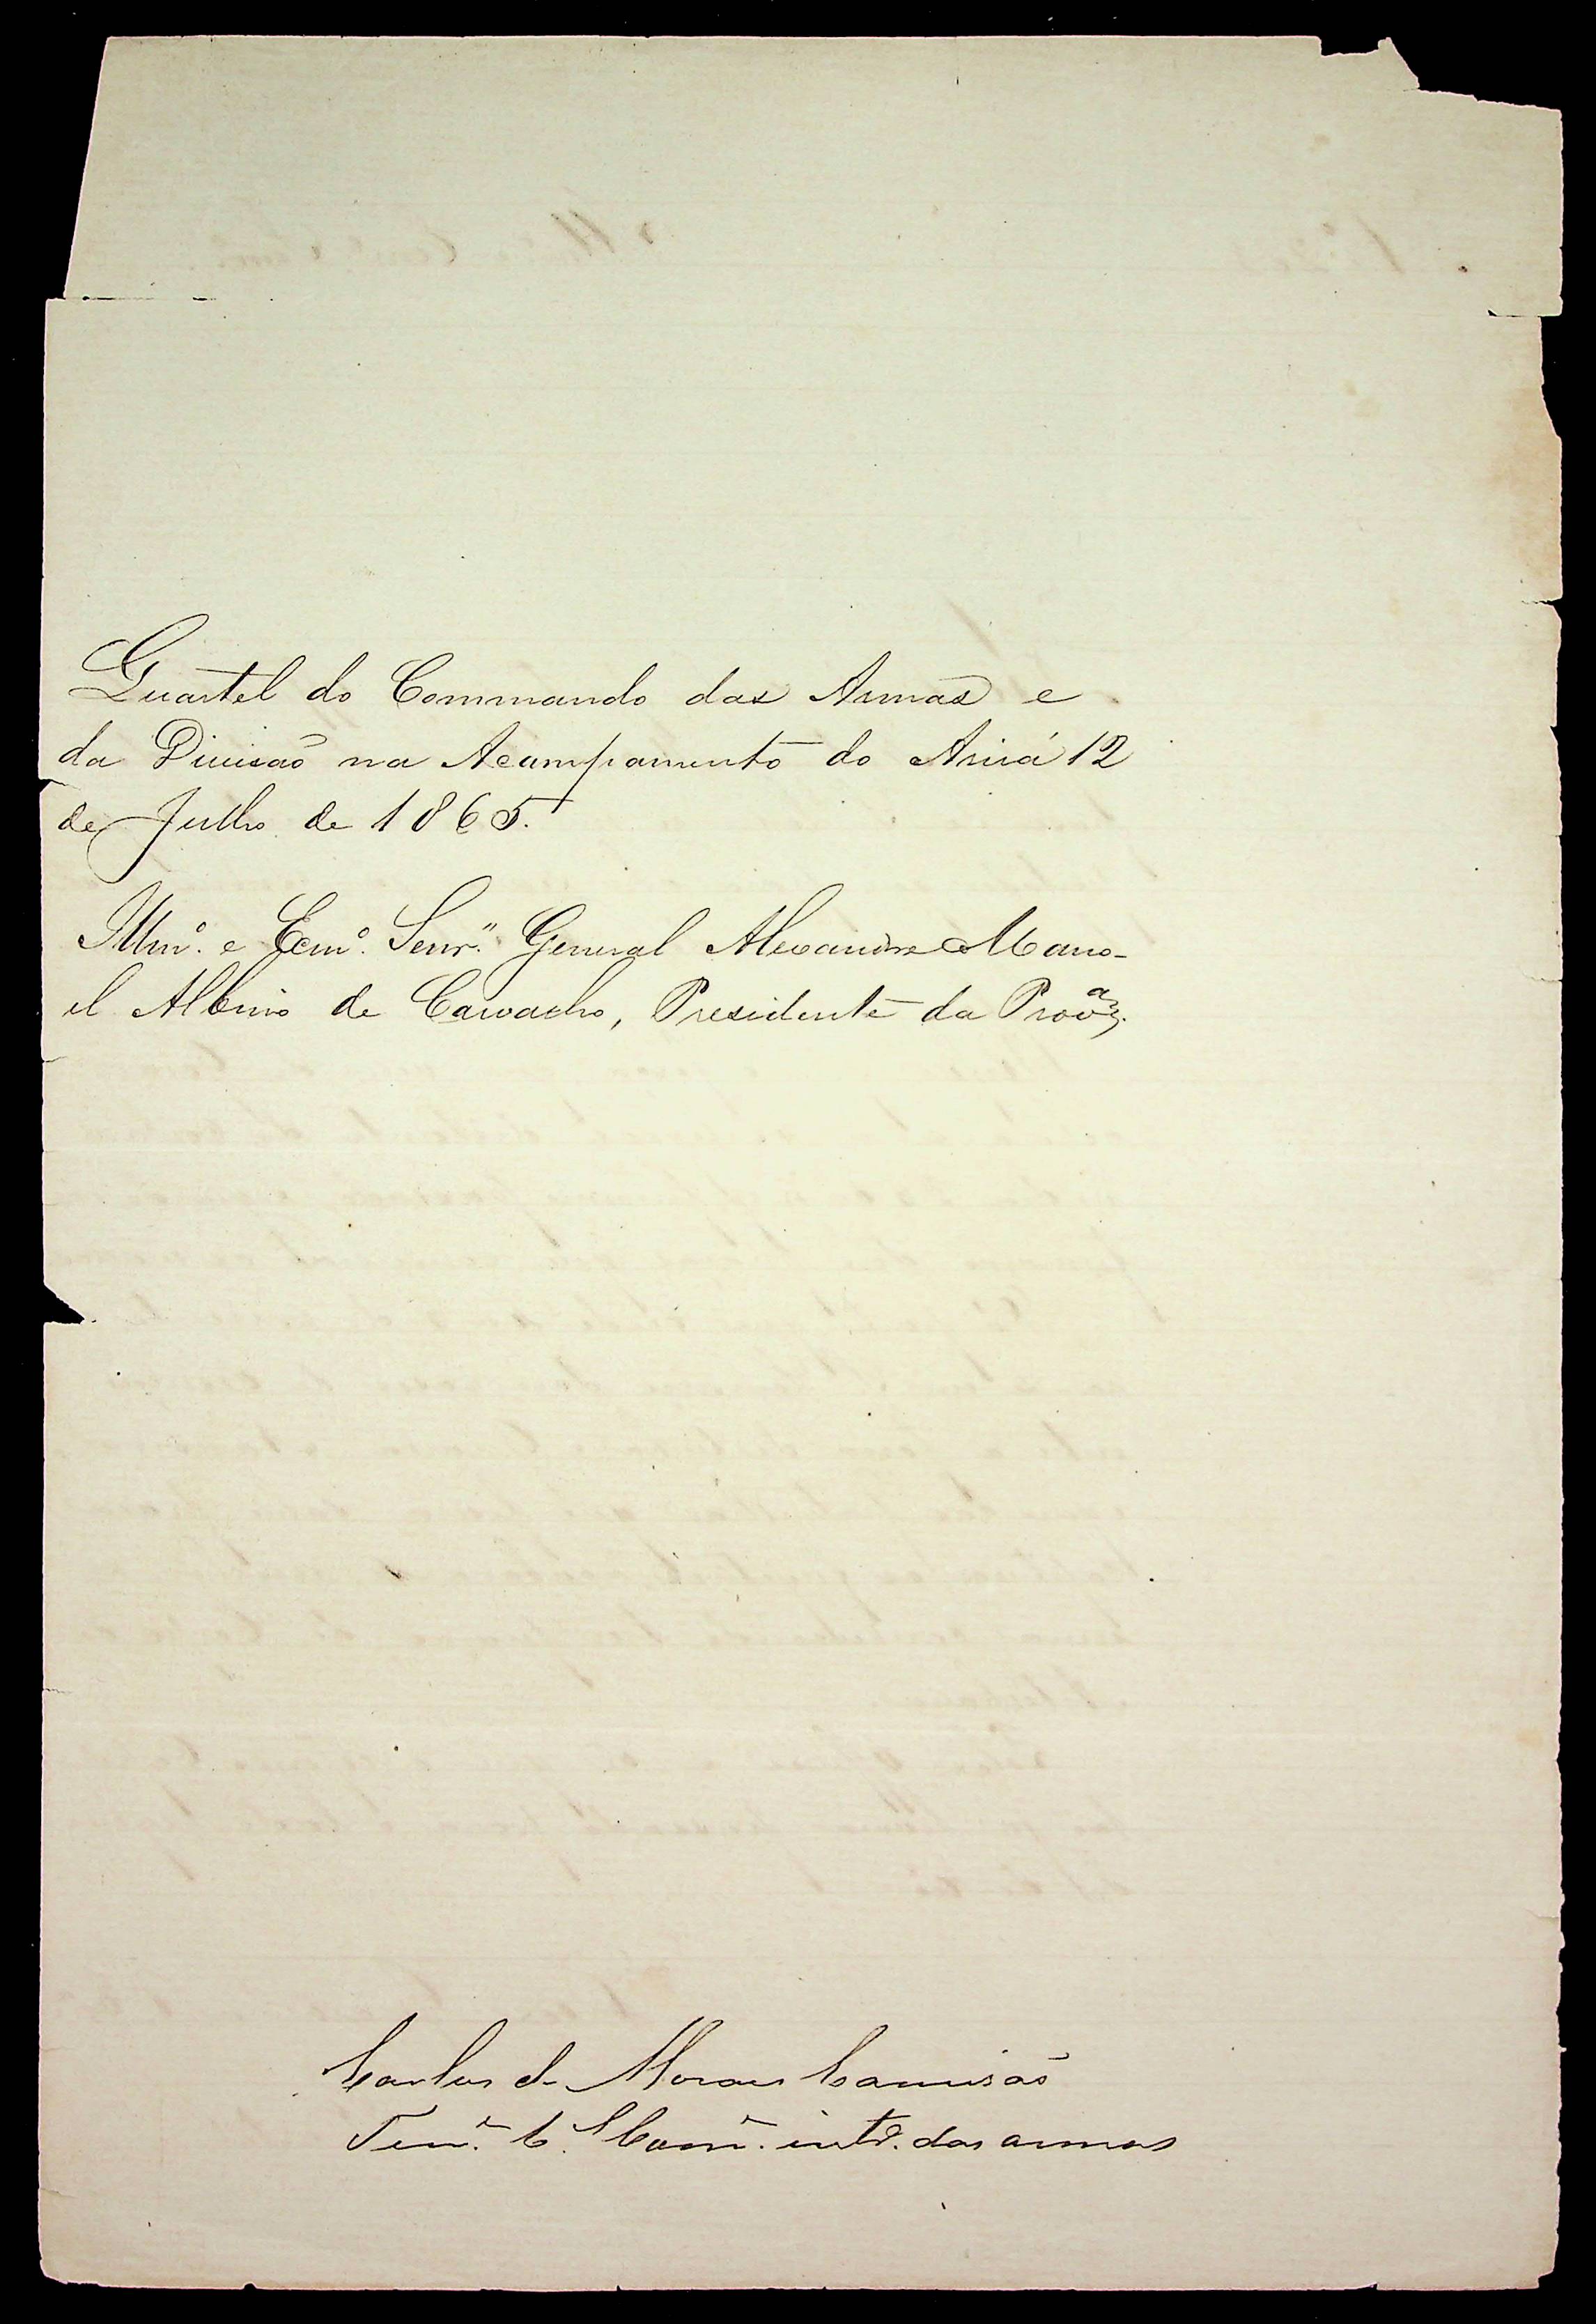 Quartel do Commando das Armas e
da Divisaõ na Acampamento do Aricá 12
de Julho de 1865.
Illmº. e Exmº. Senr." General Alexandre Mano-
el Albino de Carvalho, Presidente da Provª.
Carlos de Moraes Camisaõ
Tenᵉ. Cᵉˡ. Comᵉ. intº. das armas